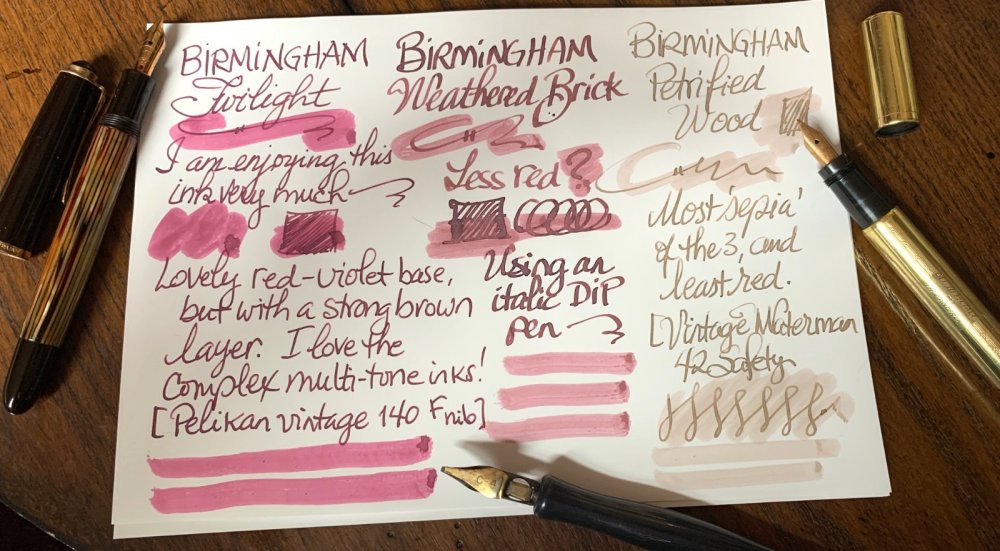 BIRMINGHAM
Twilight
I am enjoying this
ink very much
Lovely red-violet base,
but with a strong brown
layer. I love the
complex multi-tone inks!
[Pelikan vintage 140 F nib]
BIRMINGHAM
Weathered Brick
Less red?
Using an
italic DiP
pen
BIRMINGHAM
Petrified
Wood
Most 'sepia'
of the 3, and
least red.
[Vintage Waterman
42 Safety